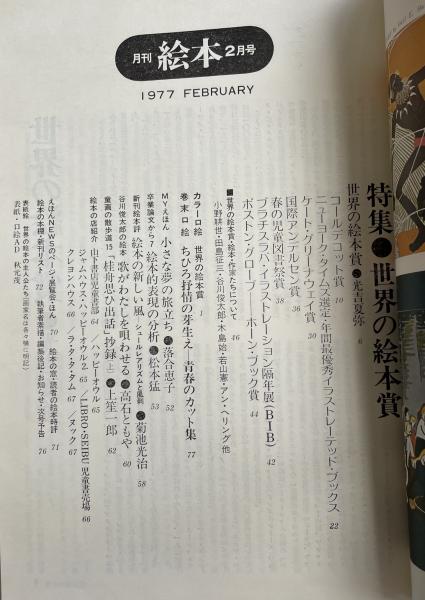 月刊 絵本 2月号
1977 FEBRUARY
特集●世界の絵本賞
世界の絵本賞●光吉夏弥 6
コールデコット賞 10
ニューヨーク・タイムズ選定・年間最優秀イラストレーテッド・ブックス 22
ケート・グリーナウェイ賞 30
国際アンデルセン賞 36
春の児童図書祭賞 38
ブラチスラバ・イラストレーション隔年展(BIB) 42
ボストン・グローブ——ホーン・ブック賞 44
■世界の絵本賞・絵本作家たちについて 46
小野耕世・田島征三・谷川俊太郎・木島始・若山憲・アン・ヘリング他
カラー口絵 世界の絵本賞 1
巻末口絵 ちひろ抒情の芽生え 青春のカット集 77
MYえほん 小さな夢の旅立ち●落合恵子 52
卒業論文から7 絵本的表現の分析●松本猛 53
新刊絵本評 絵本の新しい風 シュールレアリスムと風刺●菊池光治 58
谷川俊太郎の絵本 歌がわたしを唄わせる●高石ともや 60
童画の散歩道15 「桂舟思ひ出話」抄録(上)●上笙一郎 62
絵本の店紹介 山下書店児童書部 64 /ハッピーオウル 65
ジャムハウス・ハッピーオウル2. 65 /LIBRO・SEIBU児童書売場 66
クレヨンハウス 66 ラ・タ・タム 67 /ヌック 67
えほんNEWSのページ・展覧会・ほん 70 絵本の窓・読者の絵本時評 71
絵本の本棚・新刊リスト 72 執筆者素描・編集後記・お知らせ・次号予告 76
表紙絵 世界の絵本の主人公たち(画家名は各々横に明記)
表紙・口絵AD 秋元茂